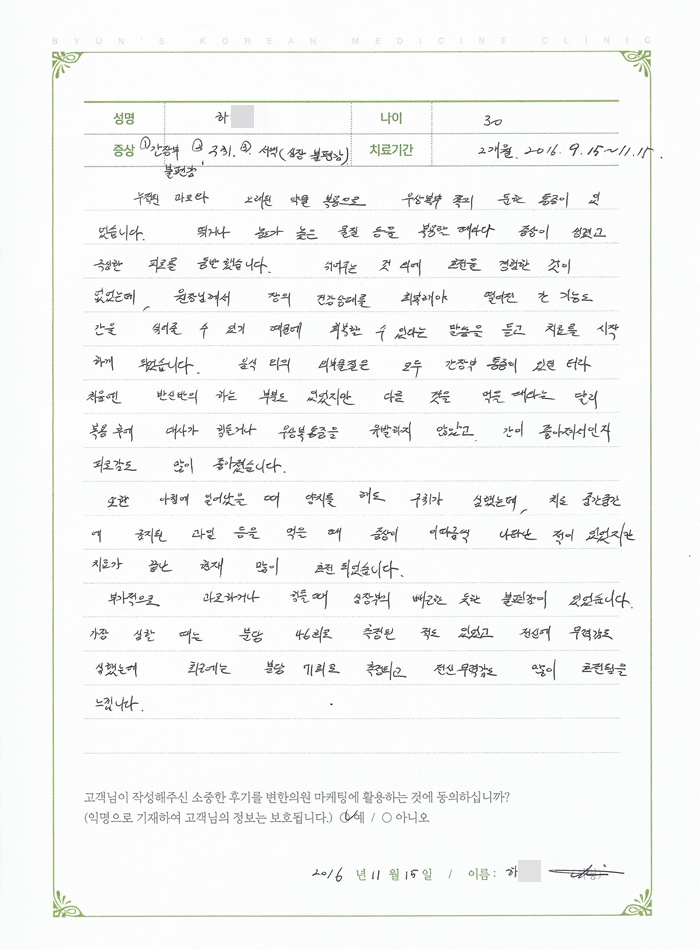 BYUN'S KOREAN MEDICINE CLINIC
성명 하 나이 30
증상 ① 간장부 불편감, ② 구취, ③ 서맥(심장 불편감) 치료기간 2개월. 2016. 9.15~11.15.
누적된 과로와 오래된 약물 복용으로 우상복부 쪽의 둔한 통증이 있
었습니다. 뛰거나 농도가 높은 물질 등을 복용한 때마다 증상이 생겼고
극심한 피로를 동반했습니다. 쉬어주는 것 외에 호전을 경험한 것이
없었는데, 원장님께서 장의 건강상태를 회복해야 떨어진 간 기능도
간을 쉬어줄 수 있기 때문에 회복할 수 있다는 말씀을 듣고 치료를 시작
하게 되었습니다. 음식 외의 외부물질은 모두 간장부 통증이 있던 터라
처음엔 반신반의 하는 부분도 있었지만 다른 것을 먹을 때와는 달리
복용 후에 대사가 힘들거나 우상복통증을 유발하지 않았고, 간이 좋아져서인지
피로감도 많이 좋아졌습니다.
또한 아침에 일어났을 때 양치를 해도 구취가 심했는데, 치료 중간중간
에 금지된 과일 등을 먹을 때 증상이 이따금씩 나타난 적이 있었지만
치료가 끝난 현재 많이 호전 되었습니다.
부가적으로 과로하거나 힘들때 심장부의 뻐근한 듯한 불편감이 있었습니다.
가장 심할 때는 분당 46회로 측정된 적도 있었고 전신에 무력감도
심했는데 최근에는 분당 71회로 측정되고 전신무력감도 많이 호전됨을
느낍니다.
고객님이 작성해주신 소중한 후기를 변한의원 마케팅에 활용하는 것에 동의하십니까?
(익명으로 기재하여 고객님의 정보는 보호됩니다.) ○ 예 / ○ 아니오
2016 년 11 월 15 일 / 이름: 하